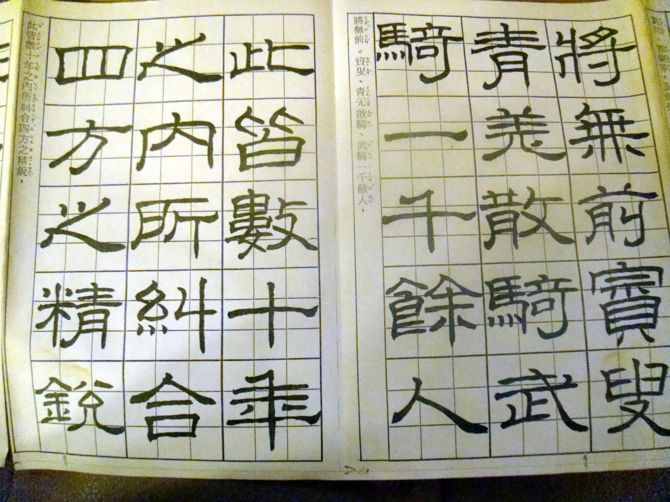 將無前賨叟
青羌散騎武
騎一千餘人
將無前。賨叟、青羌散騎、武騎一千餘人，
此皆數十年
之內所糾合
四方之精銳
此皆數十年之內所糾合四方之精銳，